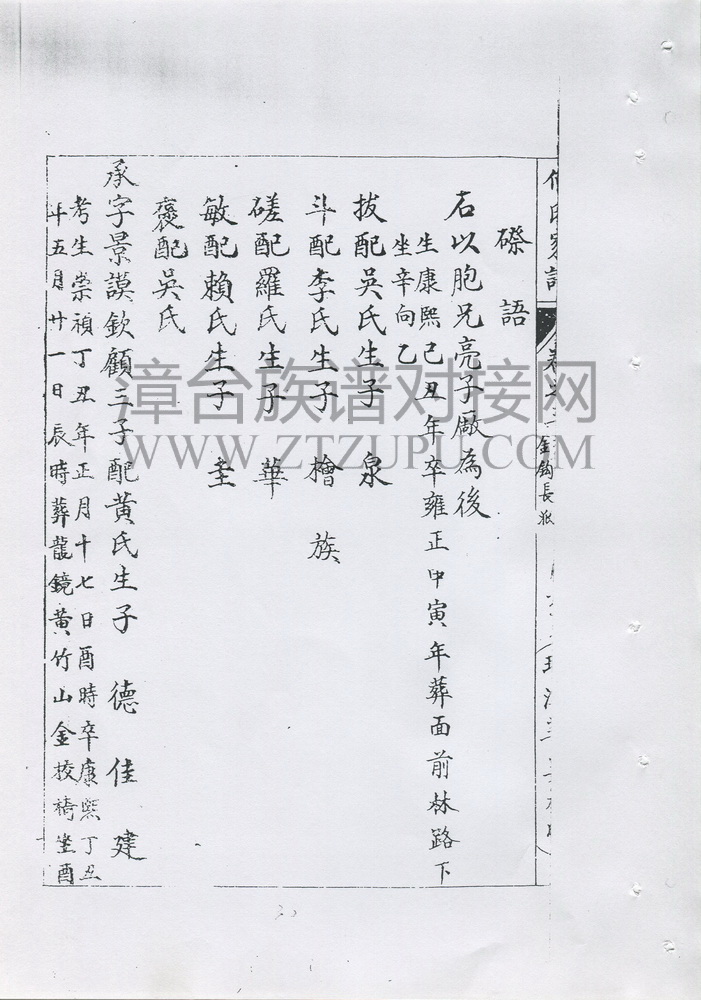 金鈎長派
磜語
石以胞兄亮子廠為後
生康熙己丑年卒雍正甲寅年葬面前林路下
坐辛向乙
拔配吳氏生子 泉
斗配李氏生子 檜 族
磋配羅氏生子 華
敏配賴氏生子 圭
褒配吳氏
承字景謨欽顧三子配黃氏生子 德 佳 建
考生崇禎丁丑年正月十七日酉時卒康熙丁丑
年五月廿一日辰時葬龍鏡黃竹山金校椅坐酉
漳台族谱对接网
WWW.ZTZUPU.COM